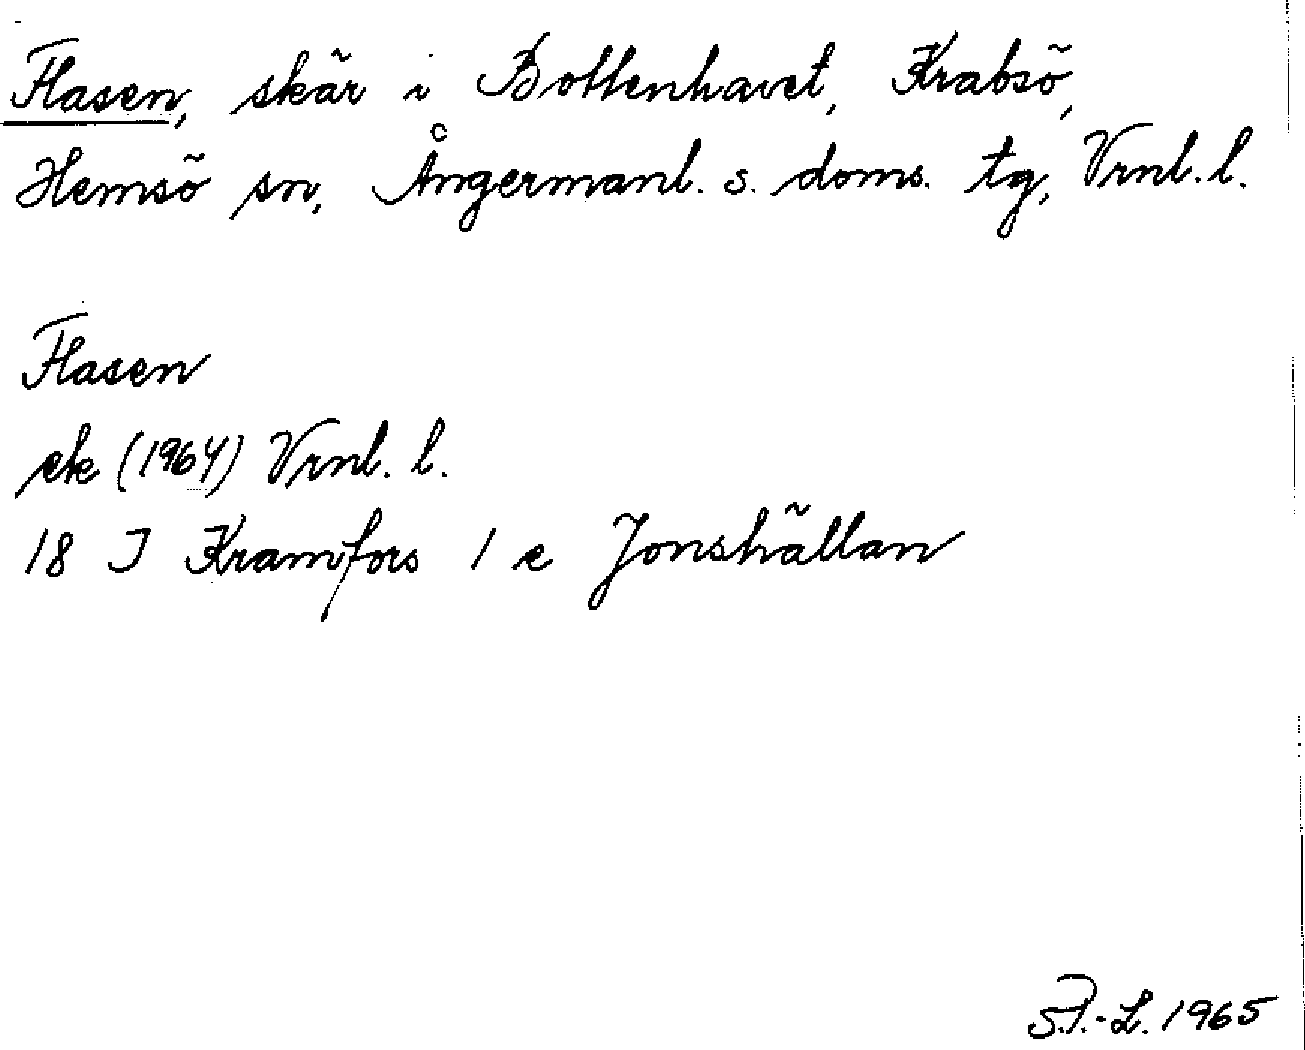 Flasen, skär i Bottenhavet, Krabsö,
Hemsö sn, Ångermanl. s. doms. tg, Vrnl. l.
Flasen
ek (1964) Vrnl. l.
18 I Kramfors 1 e Jonshällan
S.P.-L. 1965